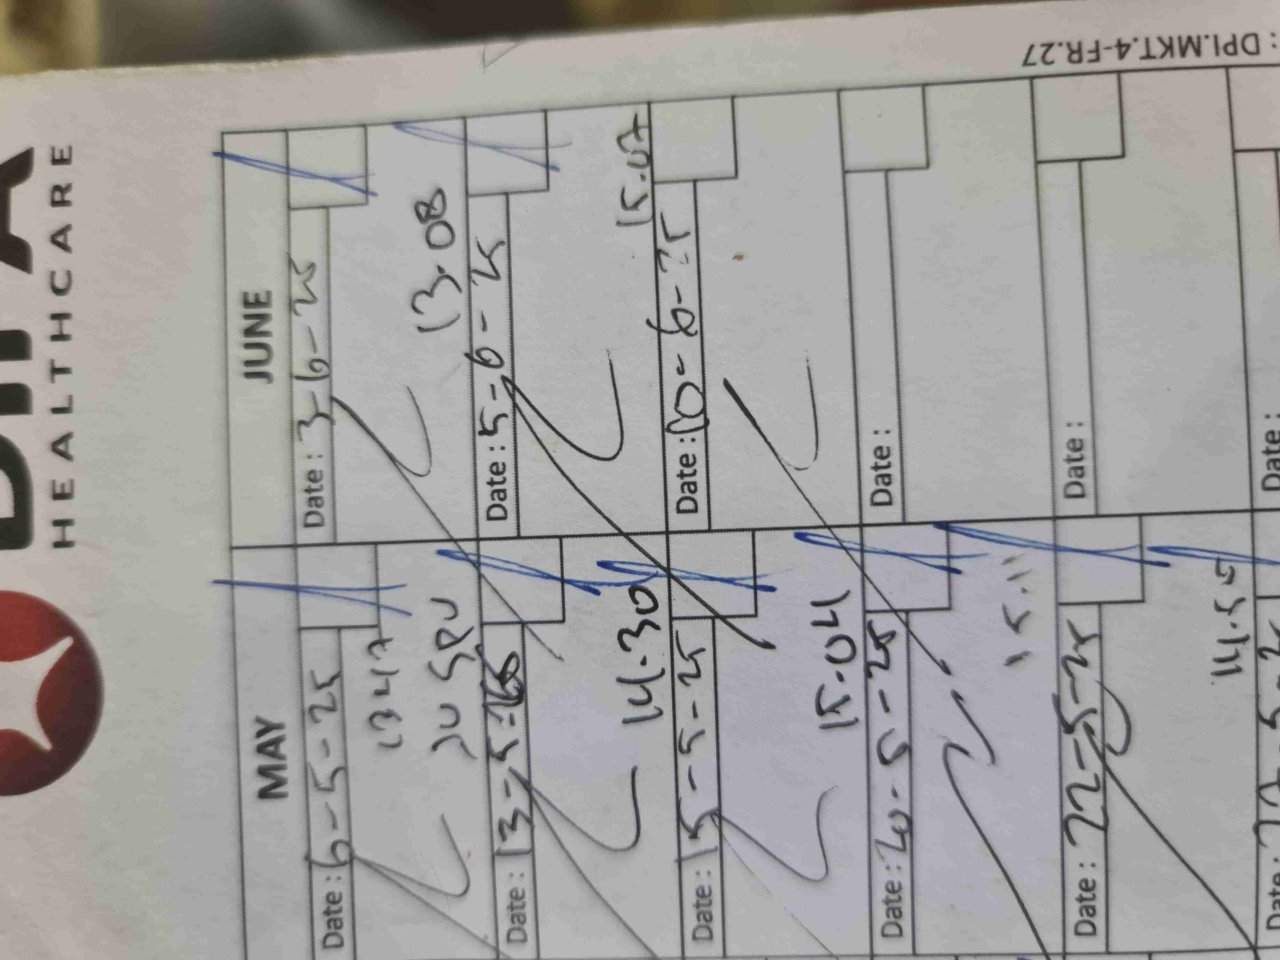 HEALTHCARE
: DPI.MKT.4-FR.27
MAY
JUNE
Date : 6-5-25
1347
Date : 3-6-25
13.08
Date : 13-5-25
14.30
Date : 5-6-25
15.07
Date : 15-5-25
15.04
Date : 10-6-25
Date : 20-5-25
15.11
Date :
Date : 22-5-25
14.55
Date :
Date
Date :